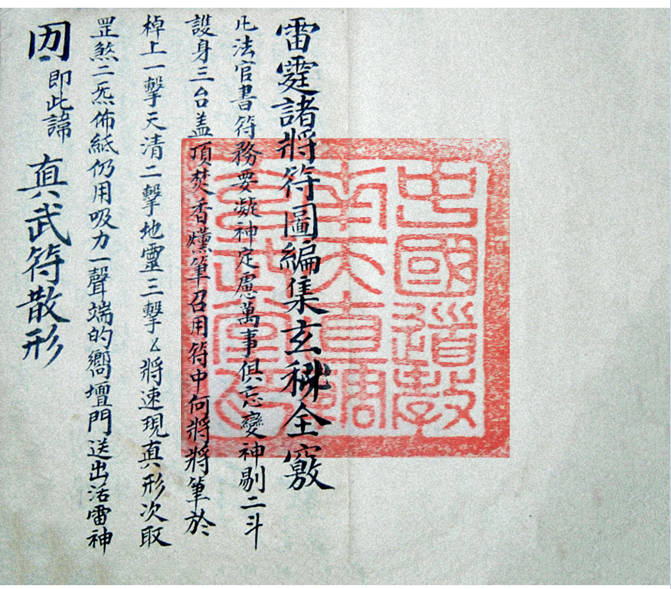 雷霆諸將符圖編集玄秘全竅
凡法官書符務要凝神定慮萬事俱忘變神剔二斗
護身三台盖頂焚香燻筆召用符中何將將筆於
棹上一擊天清二擊地靈三擊厶將速現真形次取
罡煞二炁佈紙仍用吸力一聲端的嚮壇門送出活雷神
即此諱 真武符散形
中國道教